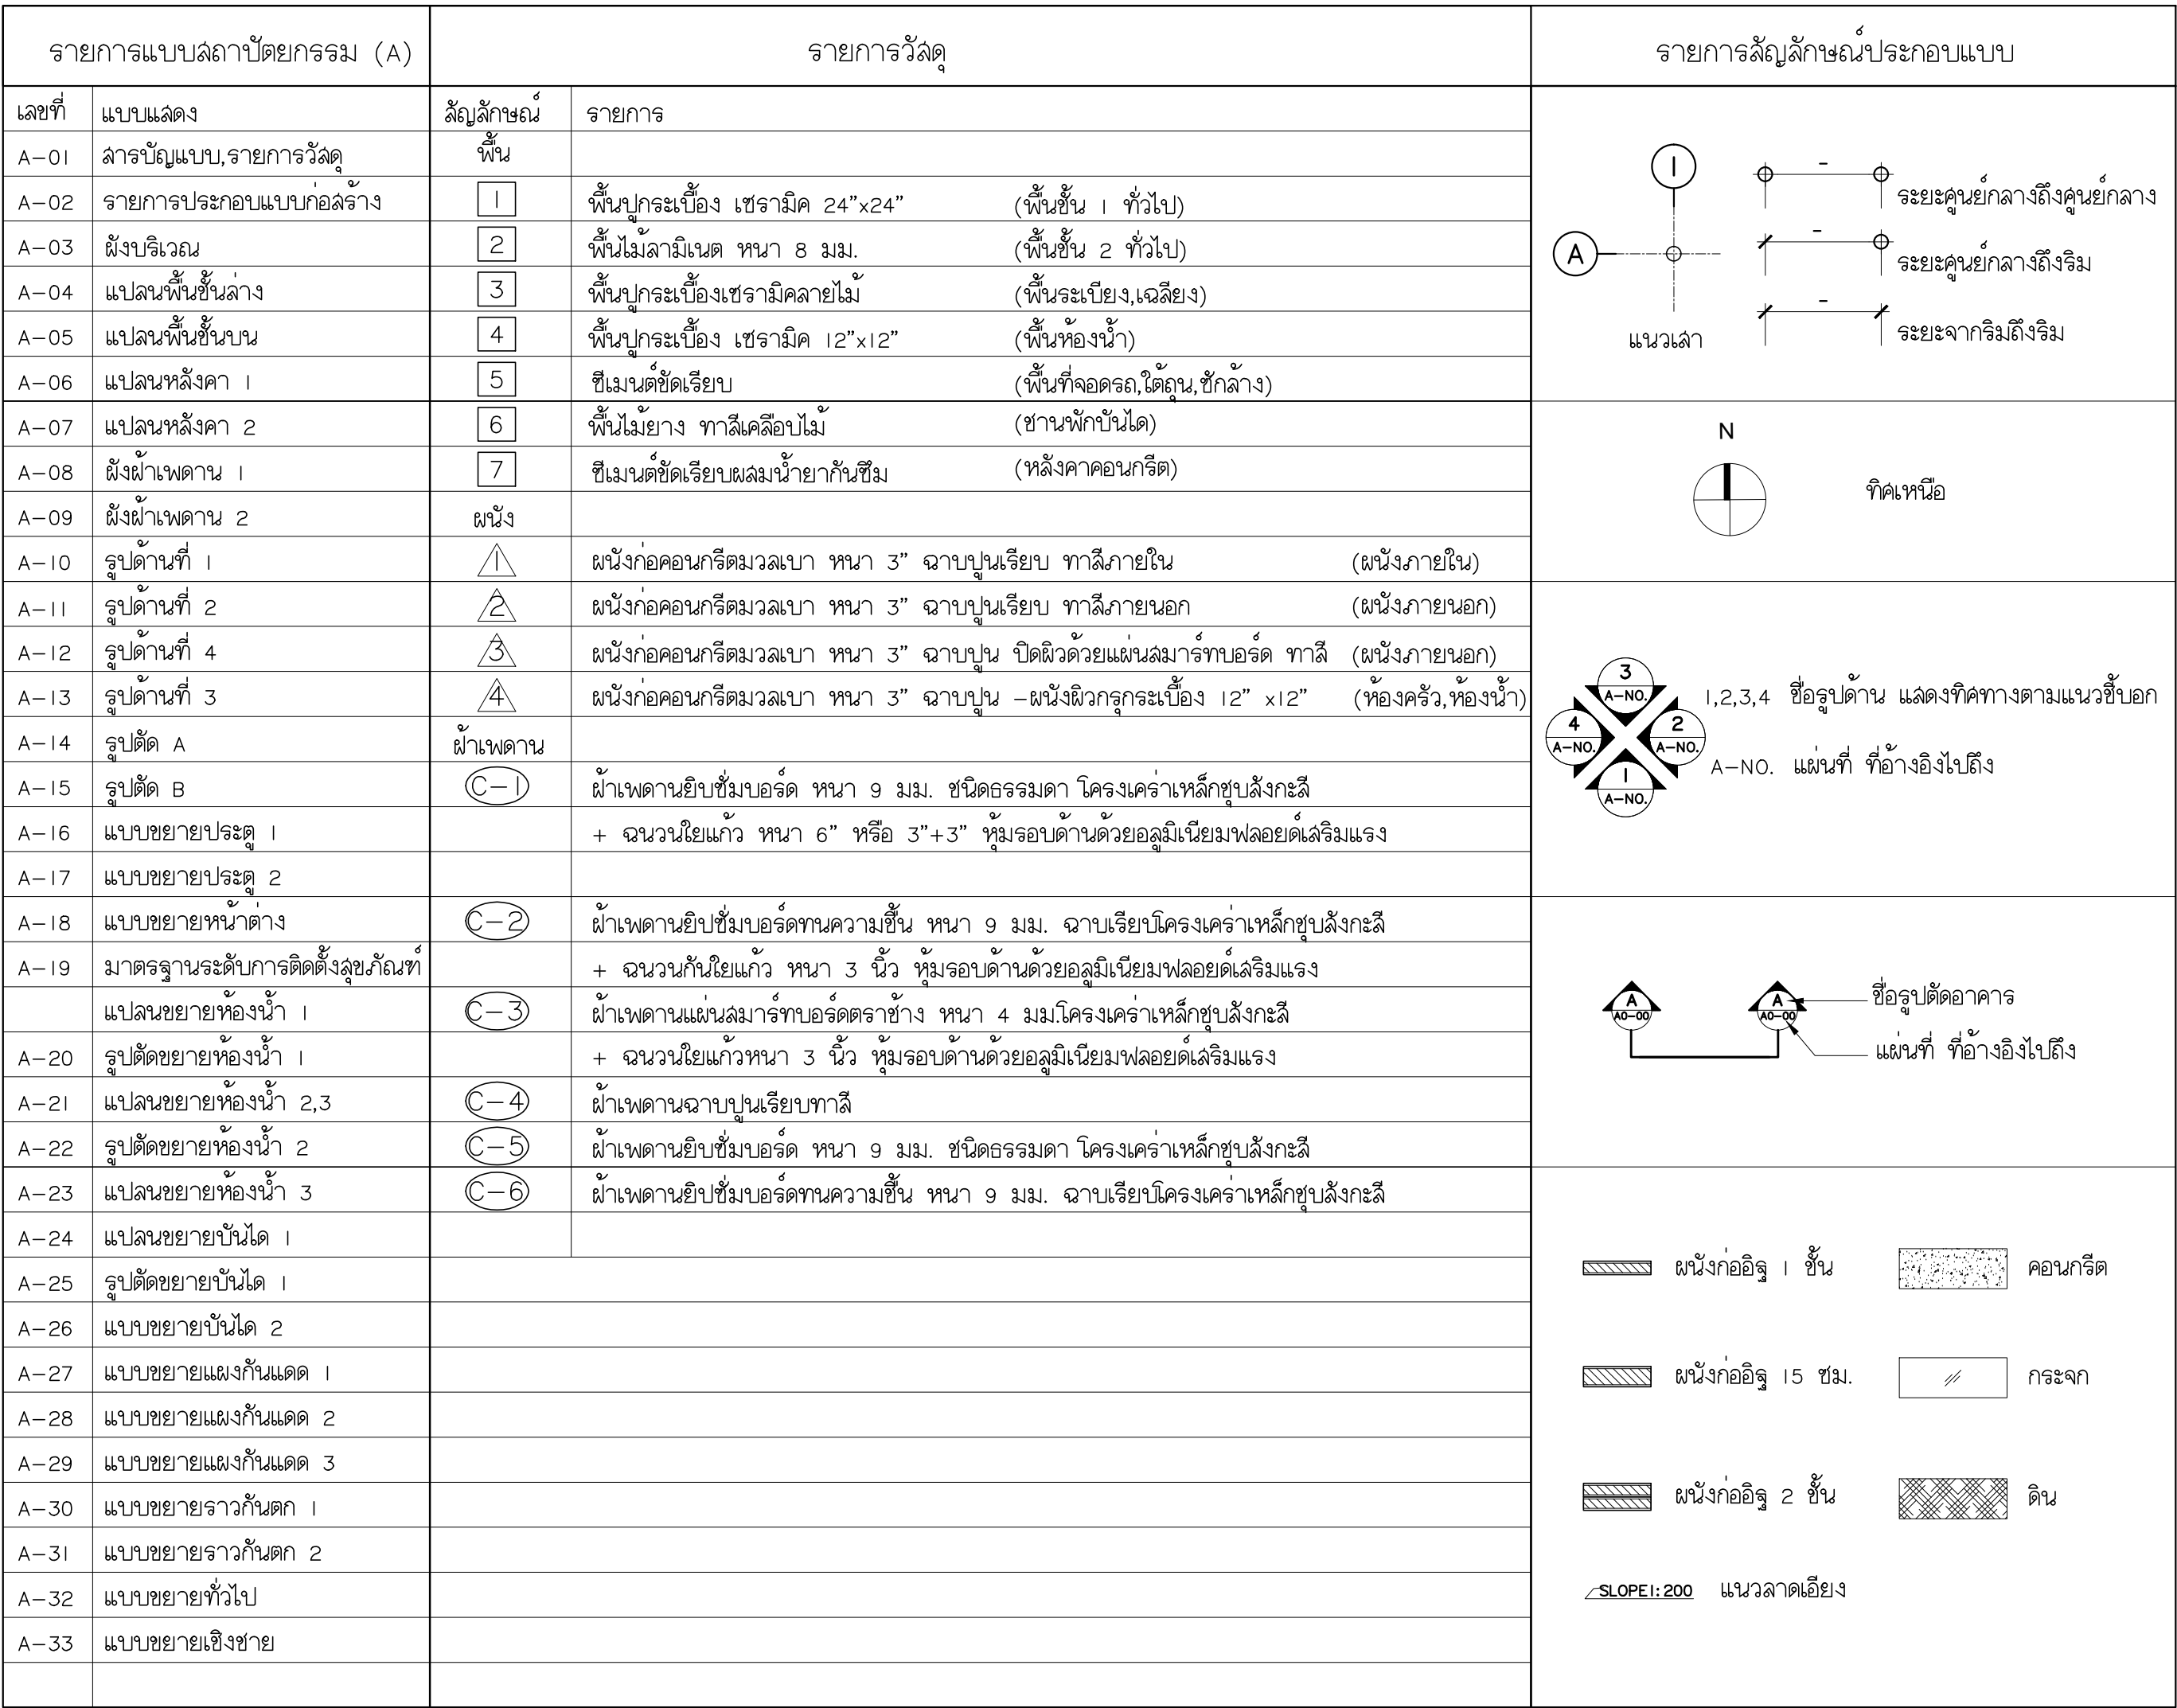 รายการแบบสถาปัตยกรรม (A)
เลขที่ แบบแสดง
A-01 สารบัญแบบ,รายการวัสดุ
A-02 รายการประกอบแบบก่อสร้าง
A-03 ผังบริเวณ
A-04 แปลนพื้นชั้นล่าง
A-05 แปลนพื้นชั้นบน
A-06 แปลนหลังคา 1
A-07 แปลนหลังคา 2
A-08 ผังฝ้าเพดาน 1
A-09 ผังฝ้าเพดาน 2
A-10 รูปด้านที่ 1
A-11 รูปด้านที่ 2
A-12 รูปด้านที่ 4
A-13 รูปด้านที่ 3
A-14 รูปตัด A
A-15 รูปตัด B
A-16 แบบขยายประตู 1
A-17 แบบขยายประตู 2
A-18 แบบขยายหน้าต่าง
A-19 มาตรฐานระดับการติดตั้งสุขภัณฑ์
แปลนขยายห้องน้ำ 1
A-20 รูปตัดขยายห้องน้ำ 1
A-21 แปลนขยายห้องน้ำ 2,3
A-22 รูปตัดขยายห้องน้ำ 2
A-23 แปลนขยายห้องน้ำ 3
A-24 แปลนขยายบันได 1
A-25 รูปตัดขยายบันได 1
A-26 แบบขยายบันได 2
A-27 แบบขยายแผงกันแดด 1
A-28 แบบขยายแผงกันแดด 2
A-29 แบบขยายแผงกันแดด 3
A-30 แบบขยายราวกันตก 1
A-31 แบบขยายราวกันตก 2
A-32 แบบขยายทั่วไป
A-33 แบบขยายเชิงชาย
รายการวัสดุ
สัญลักษณ์ รายการ
พื้น
1 พื้นปูกระเบื้อง เซรามิค 24"x24" (พื้นชั้น 1 ทั่วไป)
2 พื้นไม้ลามิเนต หนา 8 มม. (พื้นชั้น 2 ทั่วไป)
3 พื้นปูกระเบื้องเซรามิคลายไม้ (พื้นระเบียง,เฉลียง)
4 พื้นปูกระเบื้อง เซรามิค 12"x12" (พื้นห้องน้ำ)
5 ซีเมนต์ขัดเรียบ (พื้นที่จอดรถ,ใต้ถุน,ซักล้าง)
6 พื้นไม้ยาง ทาสีเคลือบไม้ (ชานพักบันได)
7 ซีเมนต์ขัดเรียบผสมน้ำยากันซึม (หลังคาคอนกรีต)
ผนัง
1 ผนังก่อคอนกรีตมวลเบา หนา 3" ฉาบปูนเรียบ ทาสีภายใน (ผนังภายใน)
2 ผนังก่อคอนกรีตมวลเบา หนา 3" ฉาบปูนเรียบ ทาสีภายนอก (ผนังภายนอก)
3 ผนังก่อคอนกรีตมวลเบา หนา 3" ฉาบปูน ปิดผิวด้วยแผ่นสมาร์ทบอร์ด ทาสี (ผนังภายนอก)
4 ผนังก่อคอนกรีตมวลเบา หนา 3" ฉาบปูน -ผนังผิวกรุกระเบื้อง 12" x12" (ห้องครัว,ห้องน้ำ)
ฝ้าเพดาน
C-1 ฝ้าเพดานยิบซั่มบอร์ด หนา 9 มม. ชนิดธรรมดา โครงเคร่าเหล็กชุบสังกะสี
+ ฉนวนใยแก้ว หนา 6" หรือ 3"+3" หุ้มรอบด้านด้วยอลูมิเนียมฟลอยด์เสริมแรง
C-2 ฝ้าเพดานยิปซั่มบอร์ดทนความชื้น หนา 9 มม. ฉาบเรียบโครงเคร่าเหล็กชุบสังกะสี
+ ฉนวนกันใยแก้ว หนา 3 นิ้ว หุ้มรอบด้านด้วยอลูมิเนียมฟลอยด์เสริมแรง
C-3 ฝ้าเพดานแผ่นสมาร์ทบอร์ดตราช้าง หนา 4 มม.โครงเคร่าเหล็กชุบสังกะสี
+ ฉนวนใยแก้วหนา 3 นิ้ว หุ้มรอบด้านด้วยอลูมิเนียมฟลอยด์เสริมแรง
C-4 ฝ้าเพดานฉาบปูนเรียบทาสี
C-5 ฝ้าเพดานยิบซั่มบอร์ด หนา 9 มม. ชนิดธรรมดา โครงเคร่าเหล็กชุบสังกะสี
C-6 ฝ้าเพดานยิปซั่มบอร์ดทนความชื้น หนา 9 มม. ฉาบเรียบโครงเคร่าเหล็กชุบสังกะสี
รายการสัญลักษณ์ประกอบแบบ
1
A
แนวเสา
-
ระยะศูนย์กลางถึงศูนย์กลาง
-
ระยะศูนย์กลางถึงริม
-
ระยะจากริมถึงริม
N
ทิศเหนือ
3
A-NO.
4
A-NO.
2
A-NO.
1
A-NO.
1,2,3,4 ชื่อรูปด้าน แสดงทิศทางตามแนวชี้บอก
A-NO. แผ่นที่ ที่อ้างอิงไปถึง
A
A0-00
A
A0-00
ชื่อรูปตัดอาคาร
แผ่นที่ ที่อ้างอิงไปถึง
ผนังก่ออิฐ 1 ชั้น คอนกรีต
ผนังก่ออิฐ 15 ซม. กระจก
ผนังก่ออิฐ 2 ชั้น ดิน
SLOPE1:200 แนวลาดเอียง